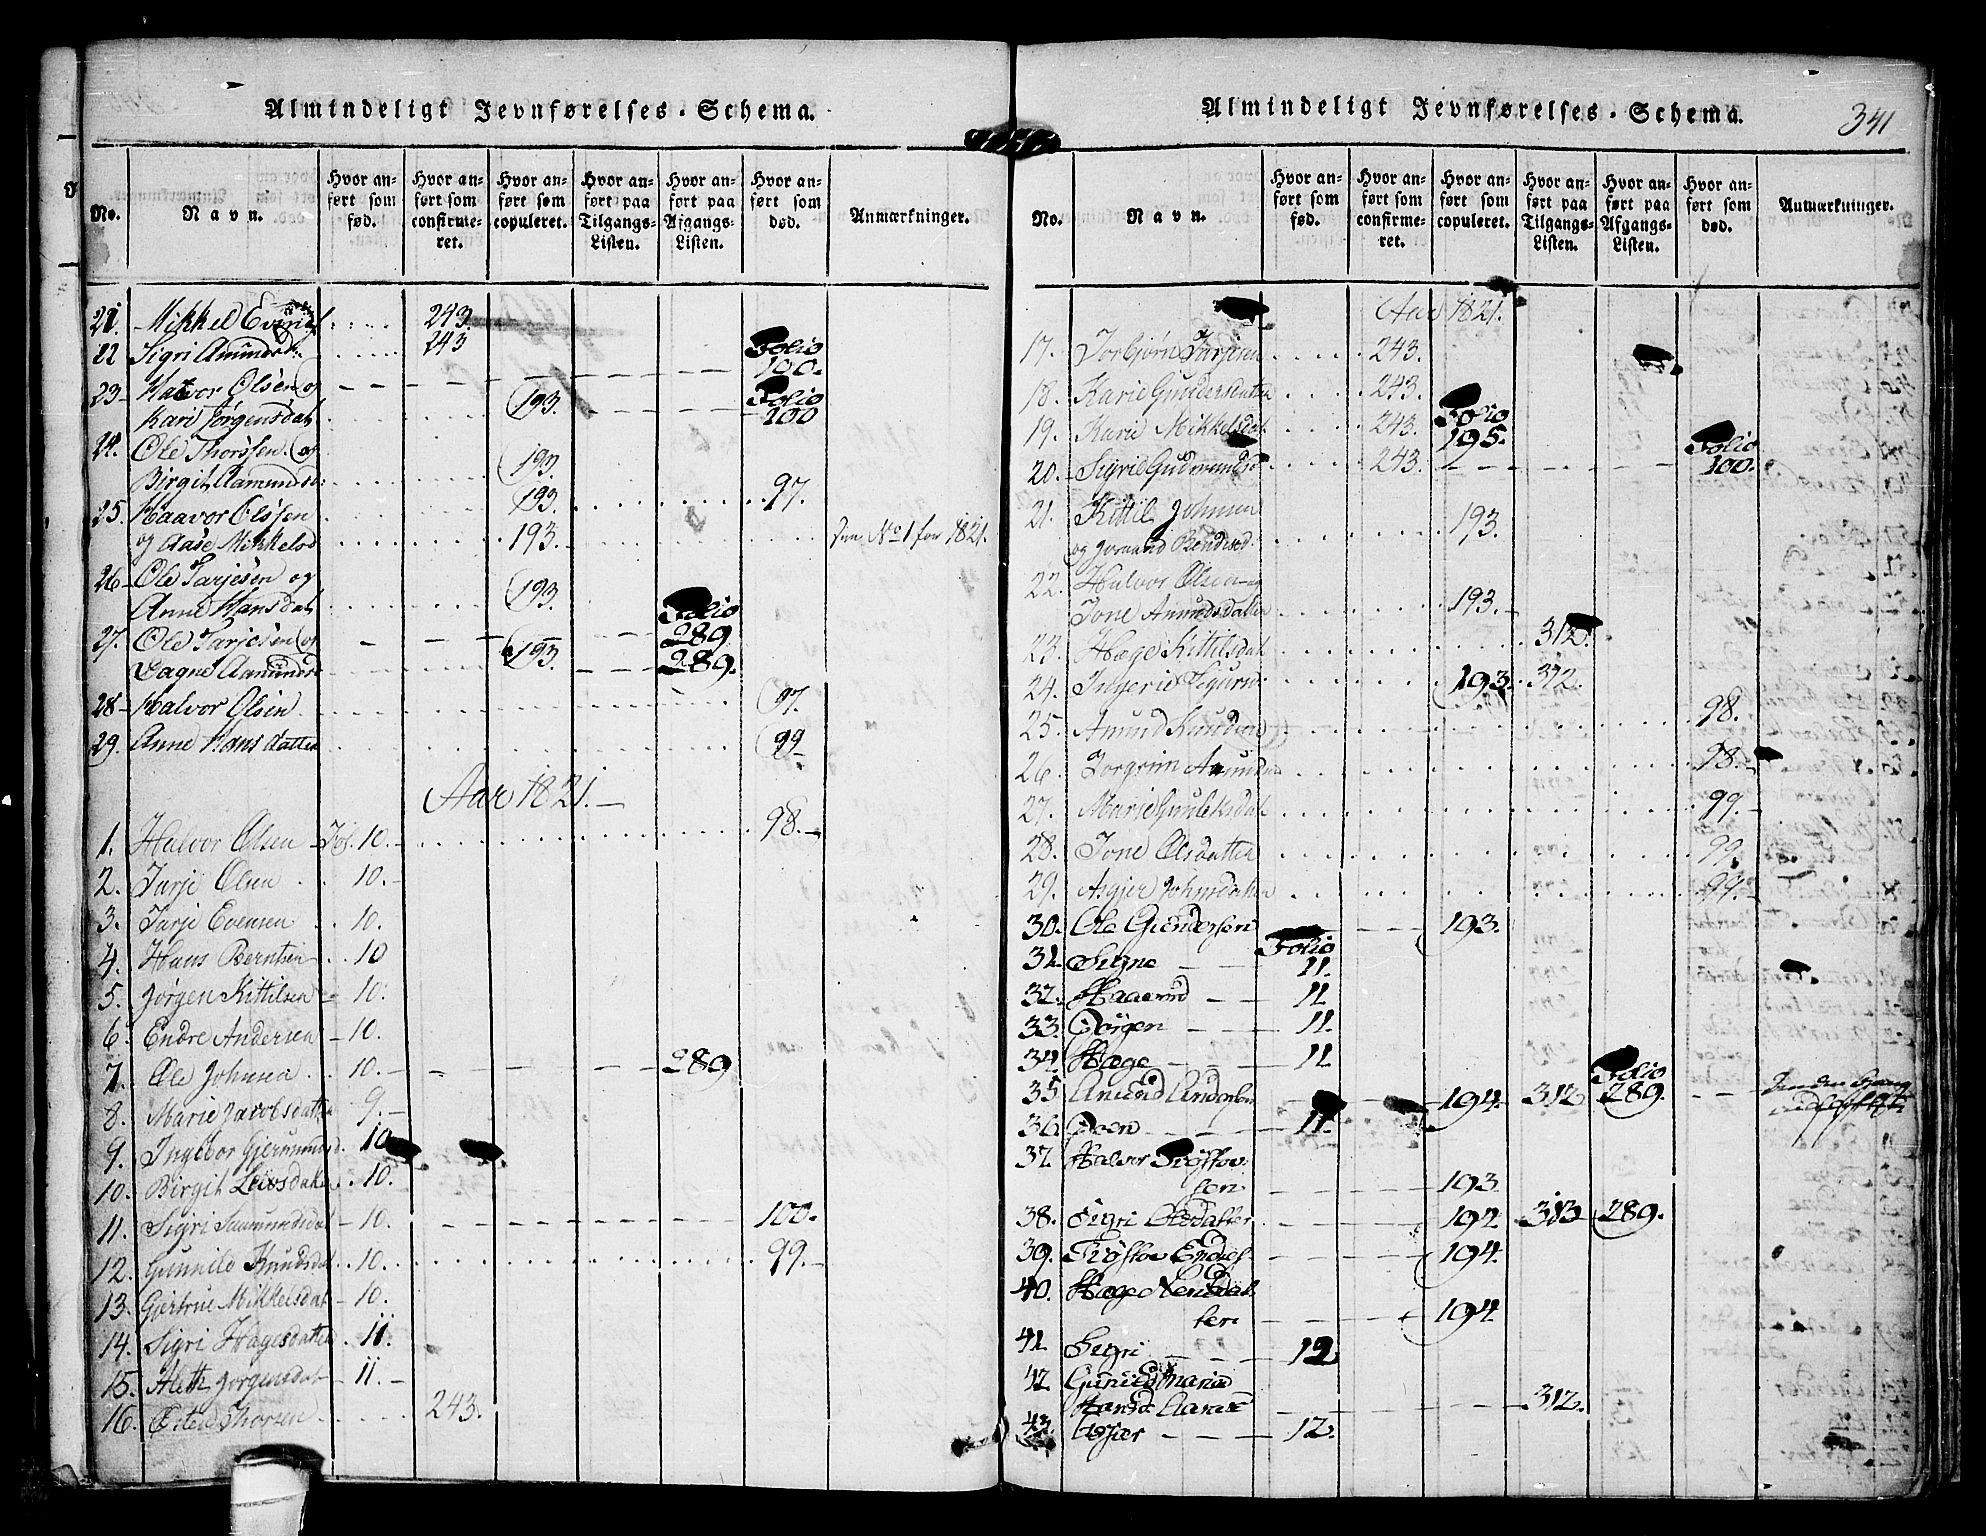 Almindeligt Jevnførelses-Schema.
No.
Navn.
Hvor anført som fød.
Hvor anført som confirmeret.
Hvor anført som copuleret.
Hvor anført paa Tilgangs-Listen.
Hvor anført paa Afgangs-Listen.
Hvor anført som død.
Anmærkninger.
21. Mikkel 243.
22 Sigri 243 Folio 100.
23 Halvor Olsen og 193. Folio 100
Kari Jørgensdat
24. Ole Thorsen og 193.
Birgit Aamunds
25. Haavor Olsen 193. 97.
og Aase Mikkelsd 193. No 1 for 1821.
26 Ole Tarjesen og 193. Folio
Anne Hansdat 289.
27. Ole Tarjesen og 193. 289.
Aamunds
28 Halvor Olsen 97.
29. Anne Hansdatter 99
Aar 1821.
1. Halvor Olsen Fol. 10. 98.
2. Tarje Olsen 10.
3. Tarje Evensen 10.
4. Hans Berntsen 10
5. Jørgen Kittilsen 10.
6. Endre Andersen 10.
7. Ole Johnsen 10. 289
8. Marie Jacobsdatter 9.
9. Ingebor Gjermunds 10.
10. Birgit Leivsdatter 10.
11. Sigri Saamundsdat 10. 100.
12. Gunnild Knudsdat 10. 99.
13. Gjertrue Mikkelsdat 10.
14. Sigri Hagesdatter 11.
15. Aleth Jørgensdat 11.
16. Thorsen 243.
Almindeligt Jevnførelses-Schema.
341
No.
Navn.
Hvor anført som fød.
Hvor anført som confirmeret.
Hvor anført som copuleret.
Hvor anført paa Tilgangs-Listen.
Hvor anført paa Afgangs-Listen.
Hvor anført som død.
Anmærkninger.
Aar 1821.
17. Torbjørn Tarjesen 243.
18. Karie Gundersdatter 243.
19. Karie Mikkelsdat 243. Folio 195.
20. Sigrie Gudmunds 243. Folio 100.
21. Kittil Johnsen 193.
og
22. Halvor Olsen og
Tone Amundsdatter 193.
23. Hæge Kittilsdat 312.
24. Ingerie 193. 312.
25. Amund Knudsen 98.
26. Torgrim 98.
27. Marie Gunleksdat 99.
28. Tone Olsdatter 99.
29. Asgjer Johnsdatter 99.
30. Ole Gundersen 193.
31. Signe Folio 11.
32. Haavord 11
33. Jørgen 11.
34. Hæge 11
35. Amund Andersen 194. 312 Folio 289.
36. 11.
37. Halvor
sen 193
38. Sigri Olsdatter 194. 313 289.
39. 194.
40. Hæge
ter 194.
41. Sigri 12
42 Gunild Maria
Hansd. 312.
43. Asjær 12.